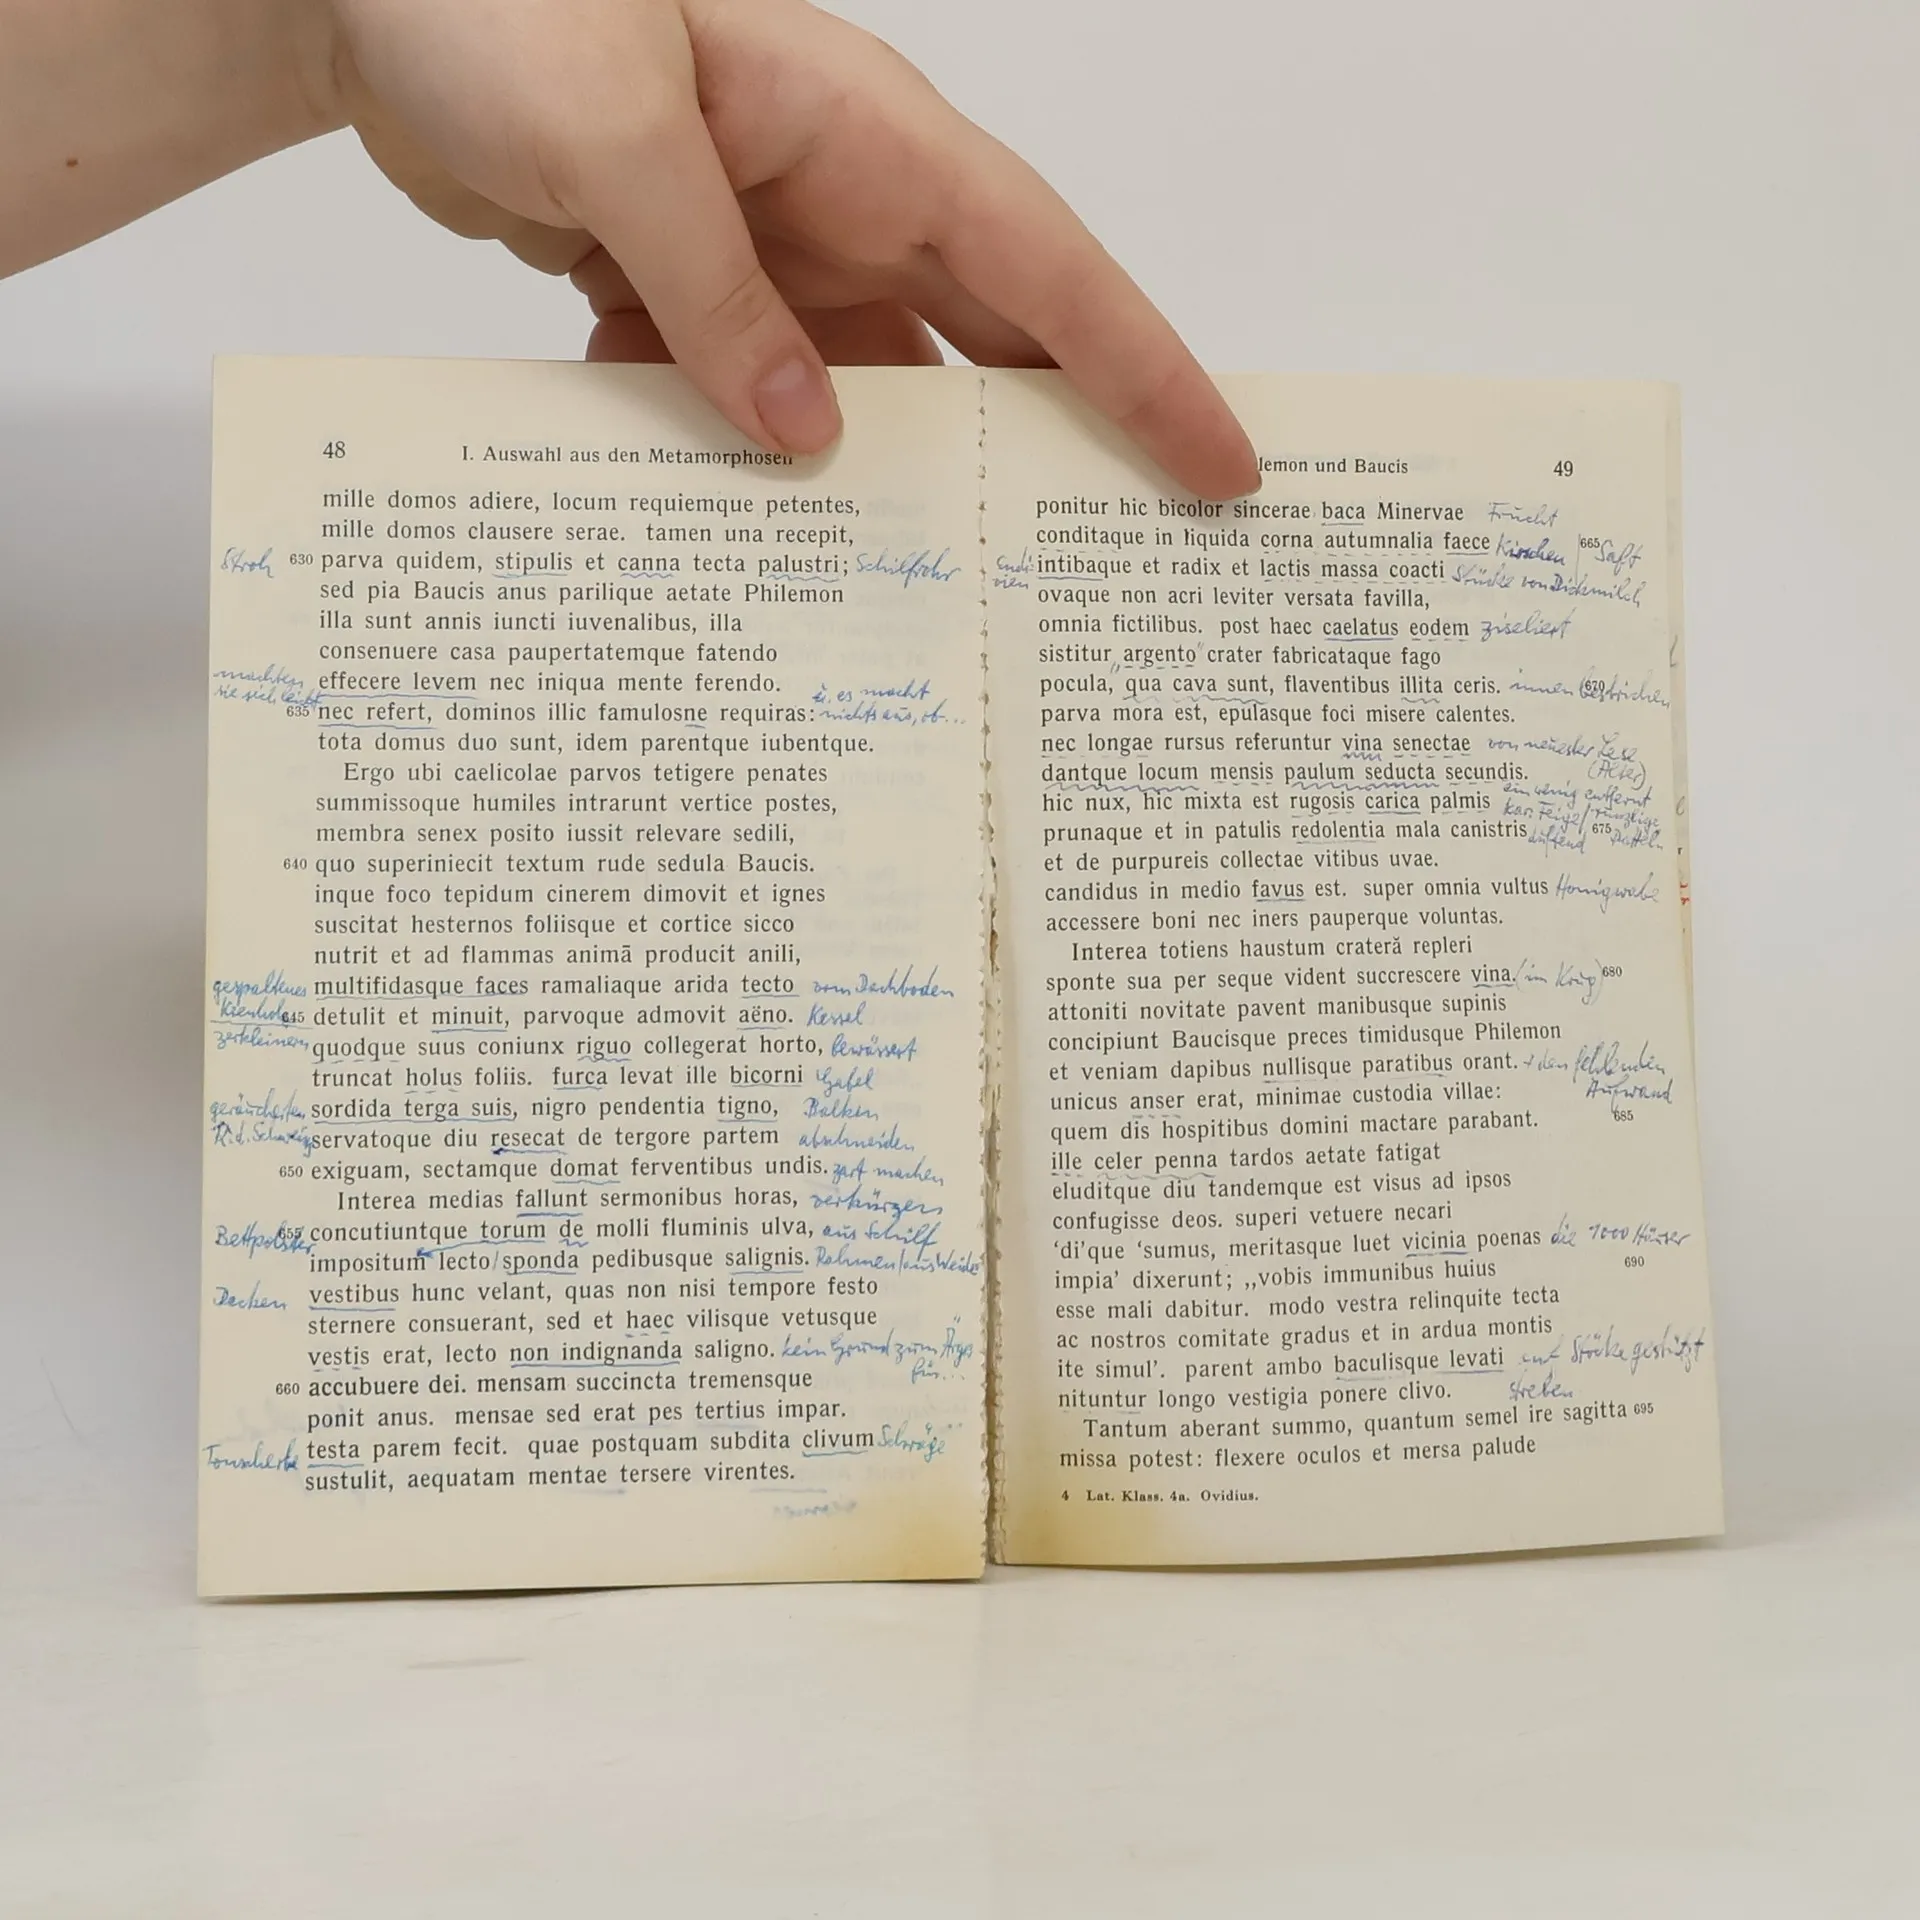 48 I. Auswahl aus den Metamorphosen
mille domos adiere, locum requiemque petentes,
mille domos clausere serae. tamen una recepit,
Stroh 630 parva quidem, stipulis et canna tecta palustri; Schilfrohr
sed pia Baucis anus parilique aetate Philemon
illa sunt annis iuncti iuvenalibus, illa
consenuere casa paupertatemque fatendo
machten sie sich leicht effecere levem nec iniqua mente ferendo.
635 nec refert, dominos illic famulosne requiras: es macht nichts aus, ob...
tota domus duo sunt, idem parentque iubentque.
Ergo ubi caelicolae parvos tetigere penates
summissoque humiles intrarunt vertice postes,
membra senex posito iussit relevare sedili,
640 quo superiniecit textum rude sedula Baucis.
inque foco tepidum cinerem dimovit et ignes
suscitat hesternos foliisque et cortice sicco
nutrit et ad flammas animā producit anili,
gespaltenes multifidasque faces ramaliaque arida tecto vom Dachboden
Kienholz 645 detulit et minuit, parvoque admovit aëno. Kessel
zerkleinern quodque suus coniunx riguo collegerat horto, bewässert
truncat holus foliis. furca levat ille bicorni Gabel
geräucherten sordida terga suis, nigro pendentia tigno, Balken
R. d. Schweins servatoque diu resecat de tergore partem abschneiden
650 exiguam, sectamque domat ferventibus undis. zart machen
Interea medias fallunt sermonibus horas, verkürzen
Bettpolster 655 concutiuntque torum de molli fluminis ulva, aus Schilf
impositum lecto/sponda pedibusque salignis. Rahmen/aus Weide
Decken vestibus hunc velant, quas non nisi tempore festo
sternere consuerant, sed et haec vilisque vetusque
vestis erat, lecto non indignanda saligno. kein Grund zum Ärger
für...
660 accubuere dei. mensam succincta tremensque
ponit anus. mensae sed erat pes tertius impar.
Tonscherbe testa parem fecit. quae postquam subdita clivum Schräge
sustulit, aequatam mentae tersere virentes.
lemon und Baucis 49
ponitur hic bicolor sincerae baca Minervae Frucht
conditaque in liquida corna autumnalia faece Kirschen 665 Saft
Endivien intibaque et radix et lactis massa coacti Stücke von Dickmilch
ovaque non acri leviter versata favilla,
omnia fictilibus. post haec caelatus eodem ziseliert
sistitur „argento“ crater fabricataque fago
pocula, qua cava sunt, flaventibus illita ceris. innen bestrichen 670
parva mora est, epulasque foci misere calentes.
nec longae rursus referuntur vina senectae von neuester Lese
(Alter)
dantque locum mensis paulum seducta secundis. ein wenig entfernt
hic nux, hic mixta est rugosis carica palmis kar. Feige/runzlige Datteln
prunaque et in patulis redolentia mala canistris duftend 675
et de purpureis collectae vitibus uvae.
candidus in medio favus est. super omnia vultus Honigwabe
accessere boni nec iners pauperque voluntas.
Interea totiens haustum crateră repleri
sponte sua per seque vident succrescere vina. (im Krug) 680
attoniti novitate pavent manibusque supinis
concipiunt Baucisque preces timidusque Philemon
et veniam dapibus nullisque paratibus orant. + den fehlenden
Aufwand
unicus anser erat, minimae custodia villae:
quem dis hospitibus domini mactare parabant. 685
ille celer penna tardos aetate fatigat
eluditque diu tandemque est visus ad ipsos
confugisse deos. superi vetuere necari
‘di’que ‘sumus, meritasque luet vicinia poenas die 1000 Häuser
impia’ dixerunt; „vobis immunibus huius 690
esse mali dabitur. modo vestra relinquite tecta
ac nostros comitate gradus et in ardua montis
ite simul’. parent ambo baculisque levati auf Stöcke gestützt
nituntur longo vestigia ponere clivo. streben
Tantum aberant summo, quantum semel ire sagitta 695
missa potest: flexere oculos et mersa palude
4 Lat. Klass. 4a. Ovidius.